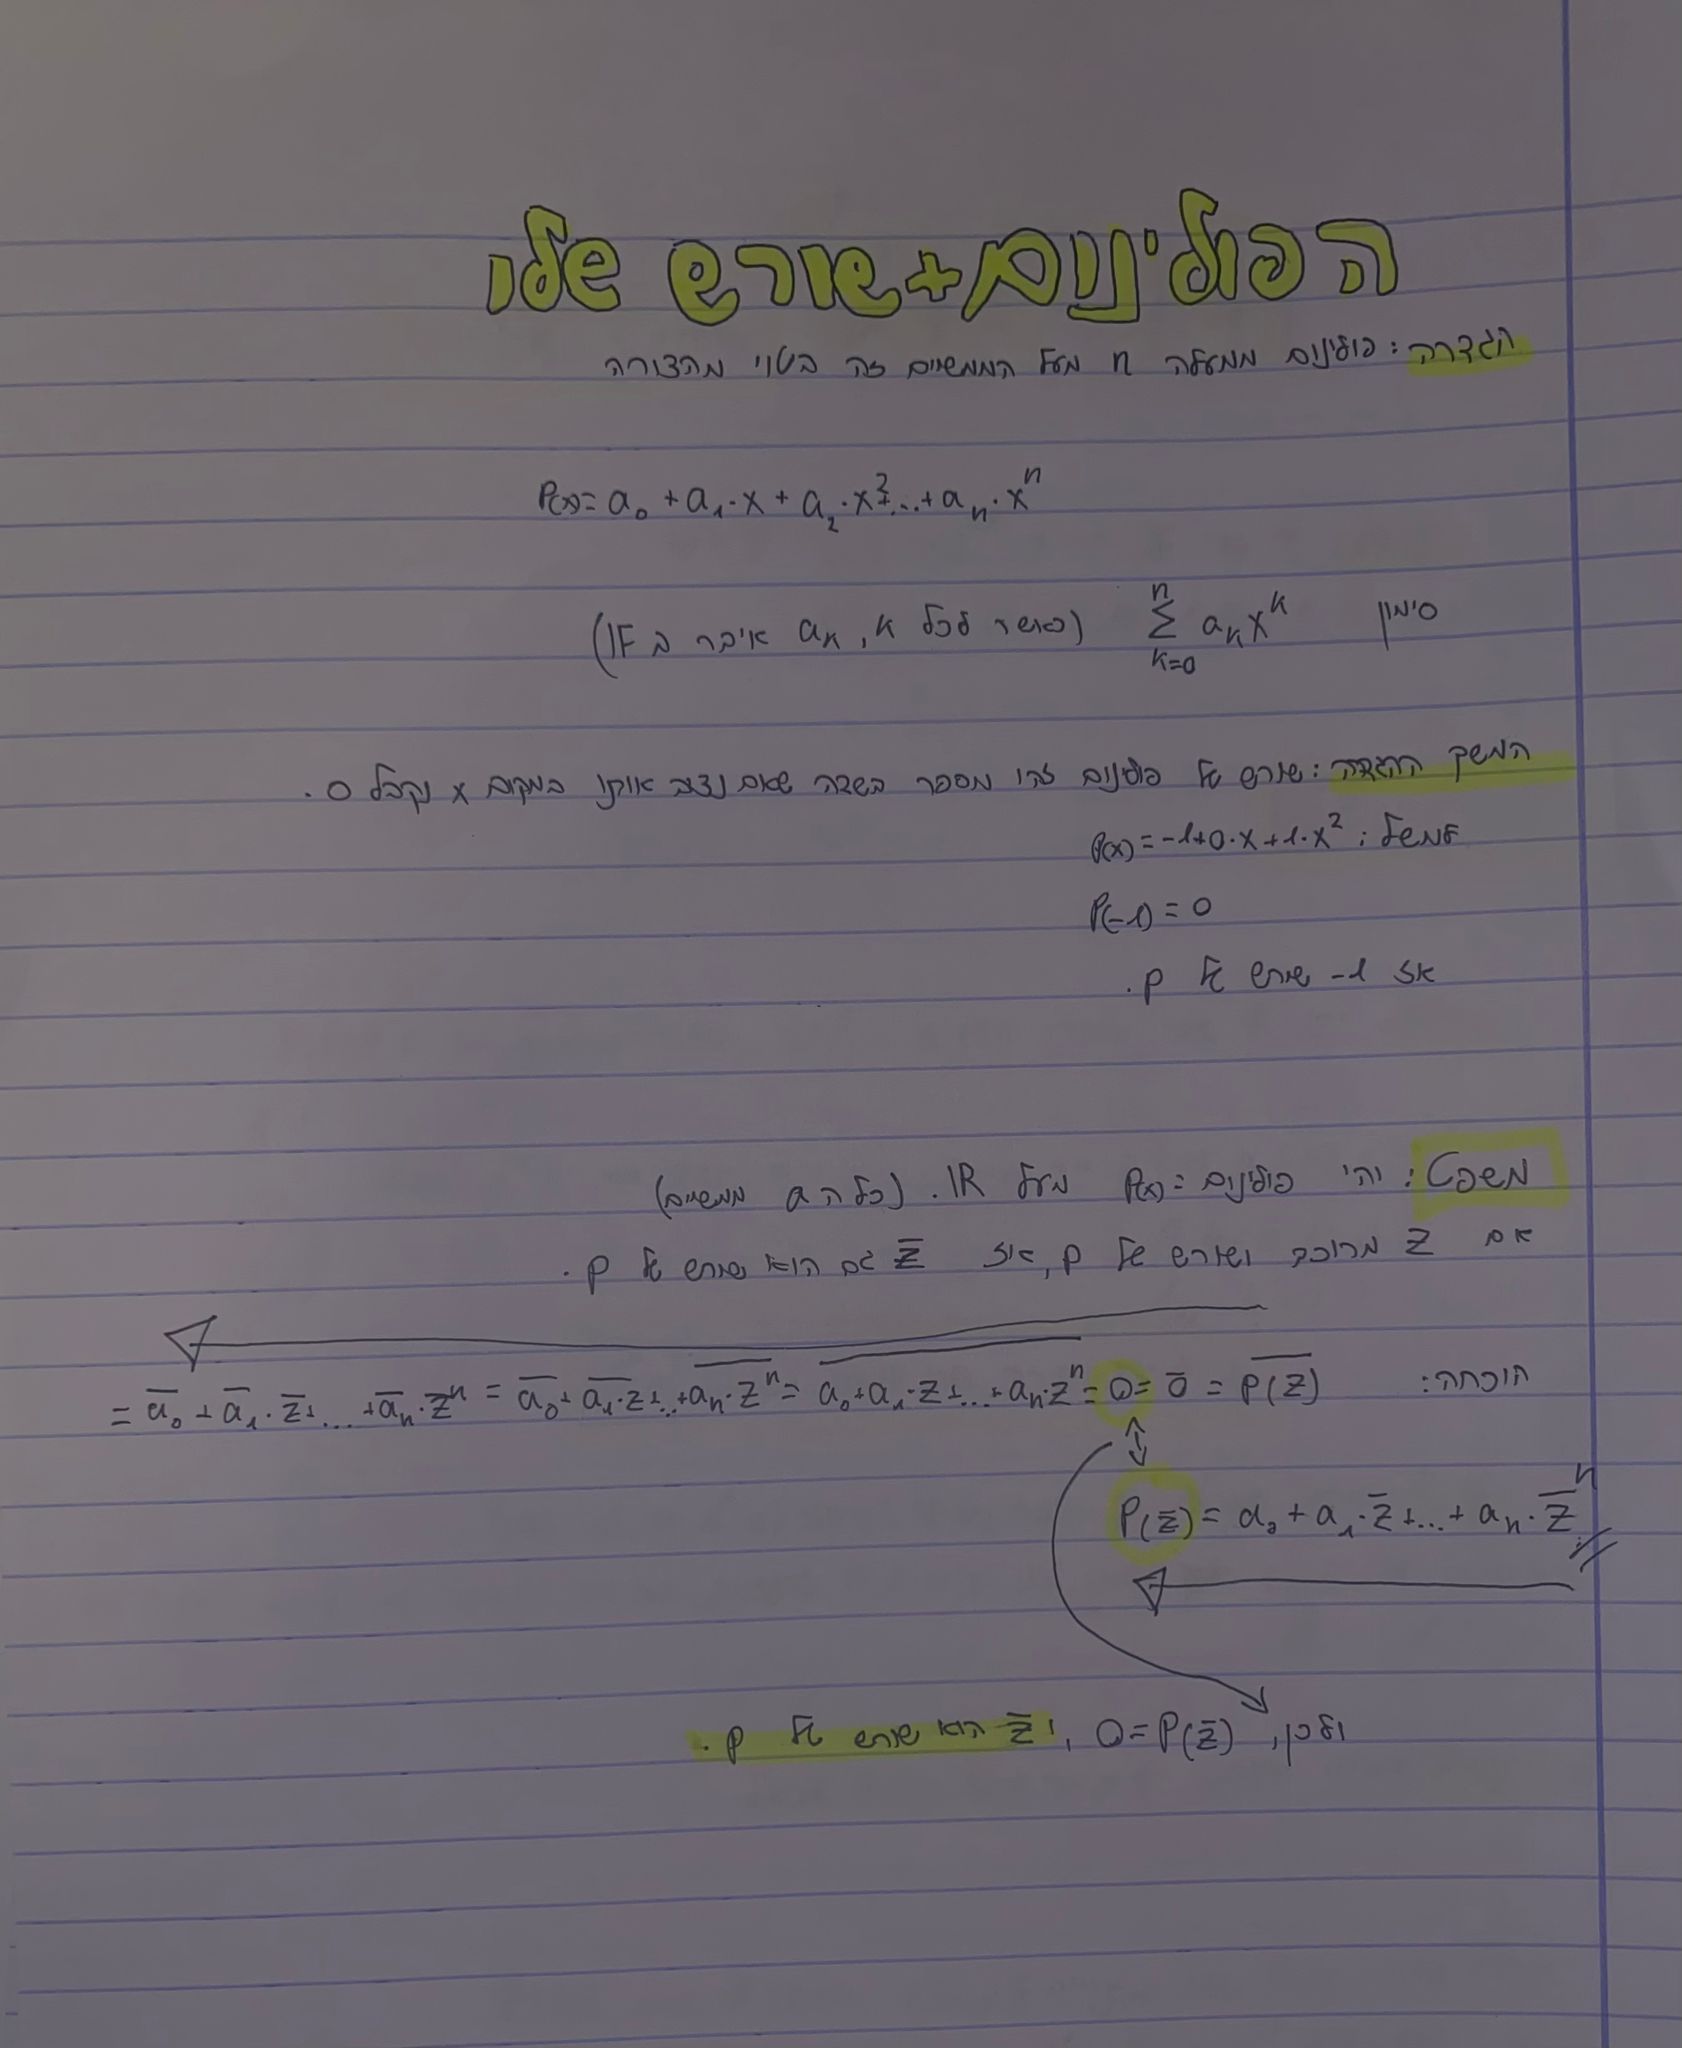 הפולינום+שורש שלו
הגדרה: פולינום ממעלה n מעל הממשיים זה ביטוי מהצורה
P(x)= a₀ + a₁·x + a₂·x²+...+ aₙ·xⁿ
סימון ∑ₖ₌₀ⁿ aₖxᵏ (כאשר לכל k, aₖ איבר ב IF)
המשך ההגדרה: שורש של פולינום זהו מספר בשדה שאם נציב אותו במקום x נקבל 0.
למשל: P(x)=-1+0·x+1·x²
P(-1)=0
אז -1 שורש של P.
משפט: יהי פולינום =P(x) מעל IR. (כל ה a ממשיים)
אם Z מרוכב ושורש של P, אז Z̅ גם הוא שורש של P.
הוכחה: = a̅₀ + a̅₁·z̅+...+a̅ₙ·z̅ⁿ = a̅₀+ \overline{a₁·z}+...+\overline{aₙ·zⁿ} = \overline{a₀+a₁·z+...+aₙ·zⁿ} = 0 = 0̅ = \overline{P(z)}
P(z̅)= a₀ + a₁·z̅+...+ aₙ·z̅ⁿ
ולכן, 0=P(z̅), ו z̅ הוא שורש של P.